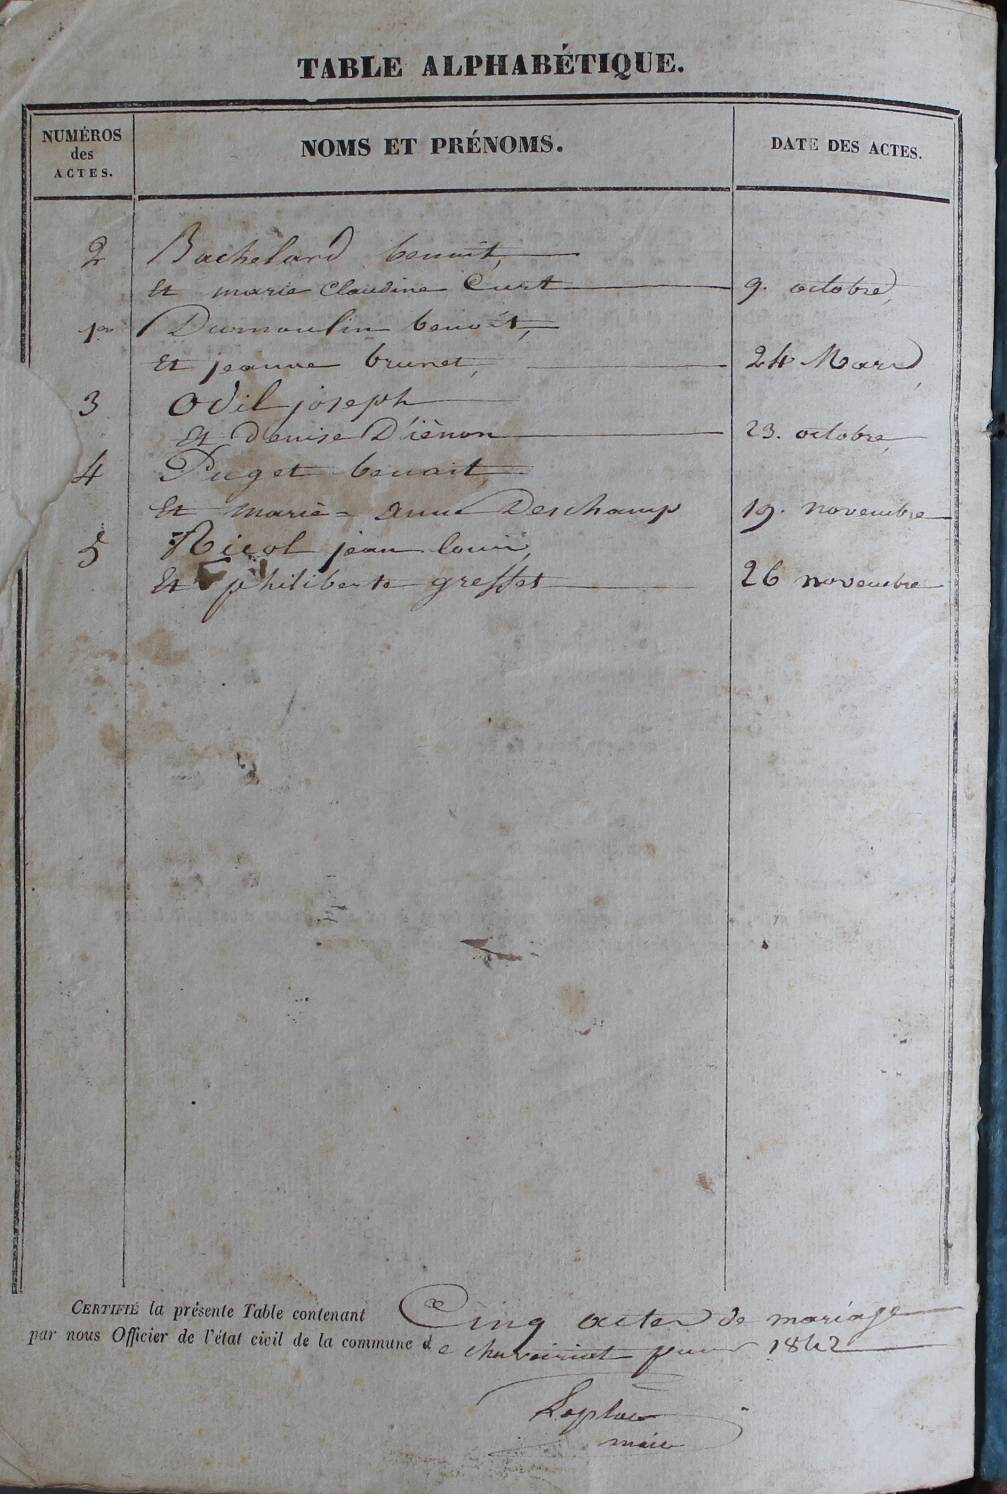 TABLE ALPHABÉTIQUE.
NUMÉROS des ACTES.
NOMS ET PRÉNOMS.
DATE DES ACTES.
2 Bachelard benoit,
Et marie Claudine Curt 9. octobre,
1er Dumoulin benoit,
Et jeanne brunet, 24 Mars,
3 Odil joseph
Et Denise Diénon 23. octobre,
4 Puget benoit,
Et marie = anne Deschamp 19. novembre
5 Nicol jean louis,
Et philiberte greffet 26 novembre
CERTIFIÉ la présente Table contenant Cinq actes de mariage
par nous Officier de l'état civil de la commune de chaveiriat pour 1842
maire